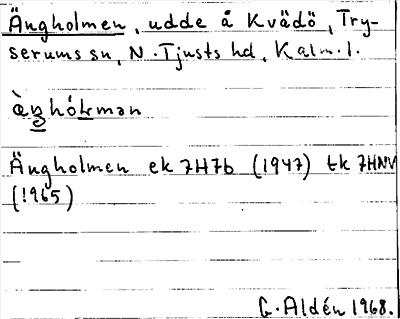 Ängholmen, udde å Kvädö, Try-
serums sn, N. Tjusts hd, Kalm. l.
Ängholmen ek 7H7b (1947) tk 7HNV
(1965)
G. Aldén 1968.